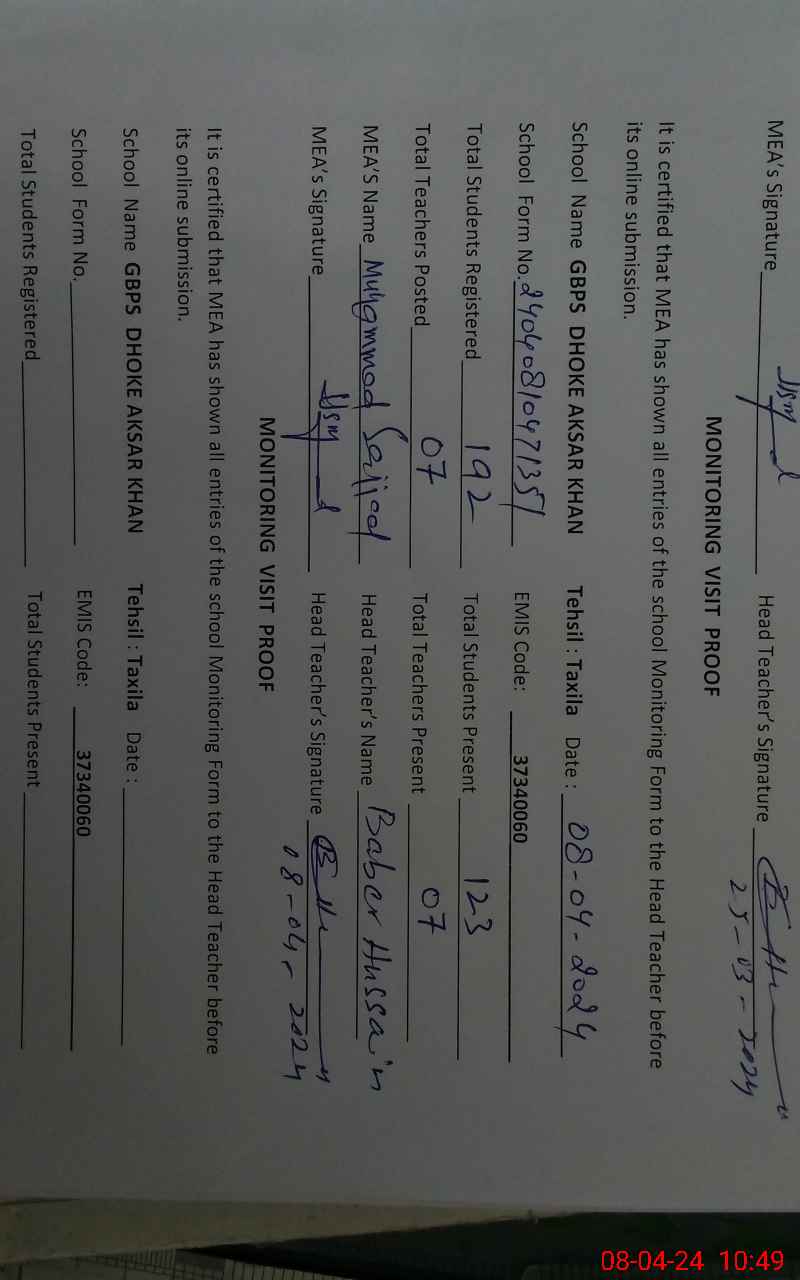 MEA's Signature Head Teacher's Signature
25-03-2024
MONITORING VISIT PROOF
It is certified that MEA has shown all entries of the school Monitoring Form to the Head Teacher before
its online submission.
School Name GBPS DHOKE AKSAR KHAN Tehsil : Taxila Date : 08-04-2024
School Form No. 24040810471351 EMIS Code: 37340060
Total Students Registered 192 Total Students Present 123
Total Teachers Posted 07 Total Teachers Present 07
MEA'S Name Muhammad Sajjad Head Teacher's Name Baber Hussain
MEA's Signature Head Teacher's Signature
08-04-2024
MONITORING VISIT PROOF
It is certified that MEA has shown all entries of the school Monitoring Form to the Head Teacher before
its online submission.
School Name GBPS DHOKE AKSAR KHAN Tehsil : Taxila Date :
School Form No. EMIS Code: 37340060
Total Students Registered Total Students Present
08-04-24 10:49